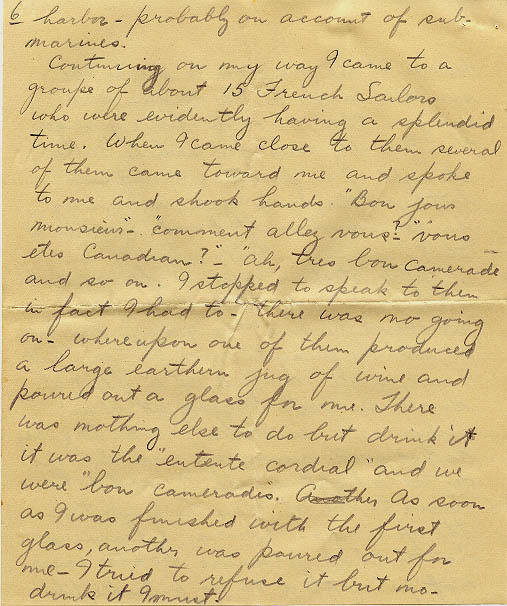 6 harbor - probably on account of sub-
marines.
Continuing on my way I came to a
groupe of about 15 French Sailors
who were evidently having a splendid
time. When I came close to them several
of them came toward me and spoke
to me and shook hands. "Bon jous
monsieur" - "comment allez vous?" - "vous
etes Canadian?" - "ah, tres bon camerade
and so on. I stopped to speak to them
in fact I had to - there was no going
on - whereupon one of them produced
a large earthern jug of wine and
poured out a glass for me. There
was nothing else to do but drink it
it was the "entente cordial" and we
were "bon camerades. Another As soon
as I was finished with the first
glass, another was poured out for
me - I tried to refuse it but no -
drink it I must.